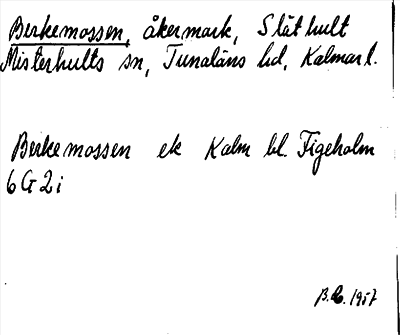 Berkemossen, åkermark, Släthult
Misterhults sn, Tunaläns hd, Kalmar l.
Berkemossen ek Kalm bl. Figeholm
6G2i
B.L. 1957